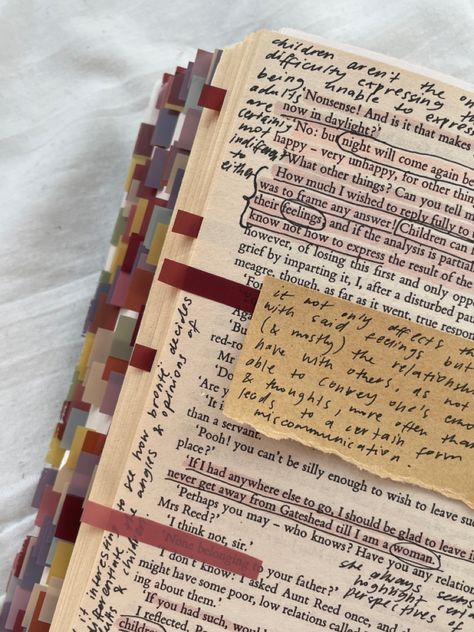 children aren't the o
difficulty expressing th
being unable to expres
adults
are
certainly
not
indifferent
to
either
'Nonsense! And is it that makes
now in daylight?'
'No: but night will come again be
happy – very unhappy, for other thin
'What other things? Can you tell
How much I wished to reply fully to t
was to frame any answer! Children can
their feelings; and if the analysis is partia
know not how to express the result of th
however, of losing this first and only opp
grief by imparting it, I, after a disturbed pau
meagre, though, as far as it went, true respon
'Fo
Aga
'But
red-ro
Mr
'Are yo
'It
than a servant.'
'Pooh! you can't be silly enough to wish to leave s
place?'
'If I had anywhere else to go, I should be glad to leave i
never get away from Gateshead till I am a woman.'
'Perhaps you may – who knows? Have you any relation
Mrs Reed?'
'I think not, sir.'
'None belonging to your father?'
'I don't know: I asked Aunt Reed once, and she
might have some poor, low relations called
ing about them.'
'If you had such, would
I reflected. Po
children
it not only affects th
with said feelings but
(& mostly) the relationsh
have with others, as not
able to convey one's emo
& thoughts, more often tha
leads to a certain form
miscommunication.
interesting to see how brontë decides
differentiate the angles & opinions of
& child
she always seem
highlight cert
perspectives of